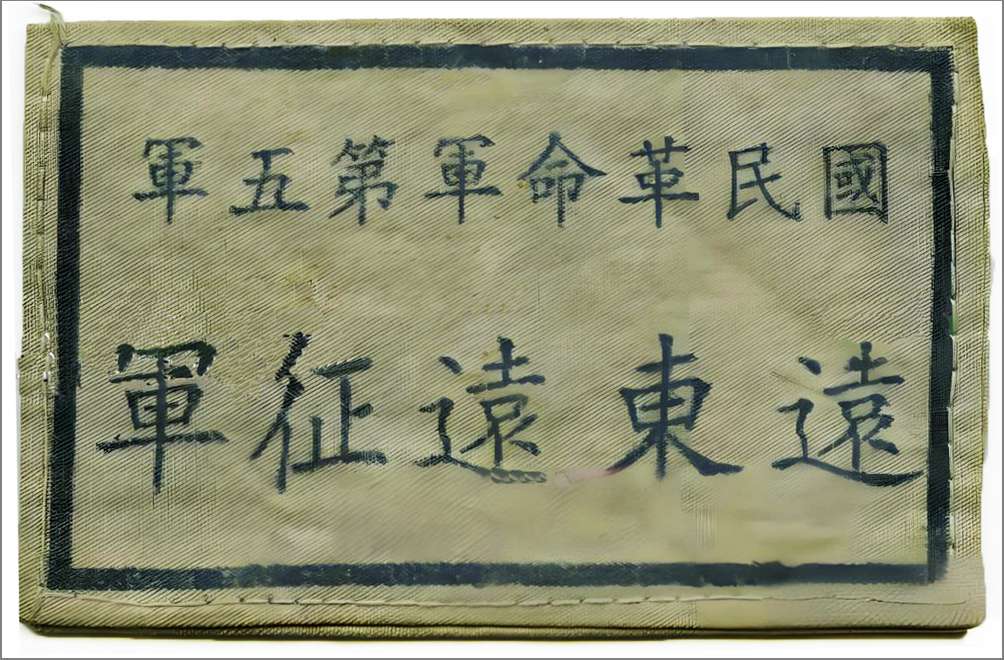 國民革命軍第五軍
遠東遠征軍